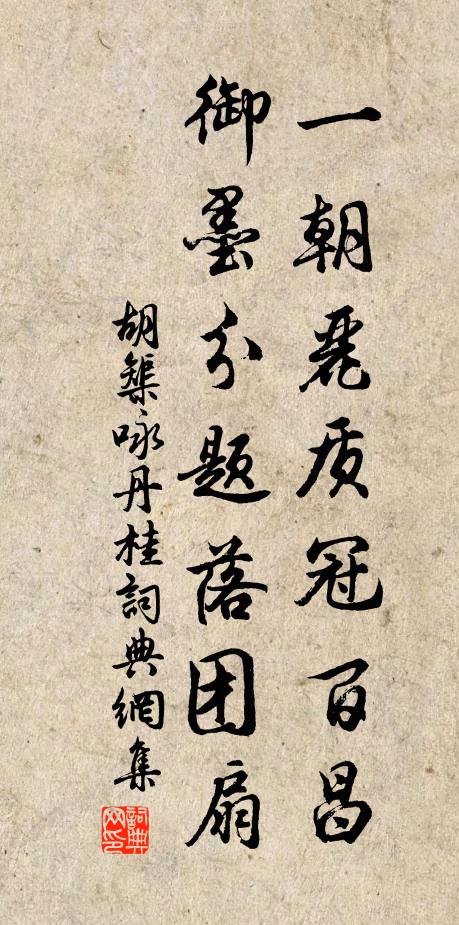 一朝麗质冠百昌
御墨分题落团扇
胡榘咏丹桂詞典網集
詞典网印